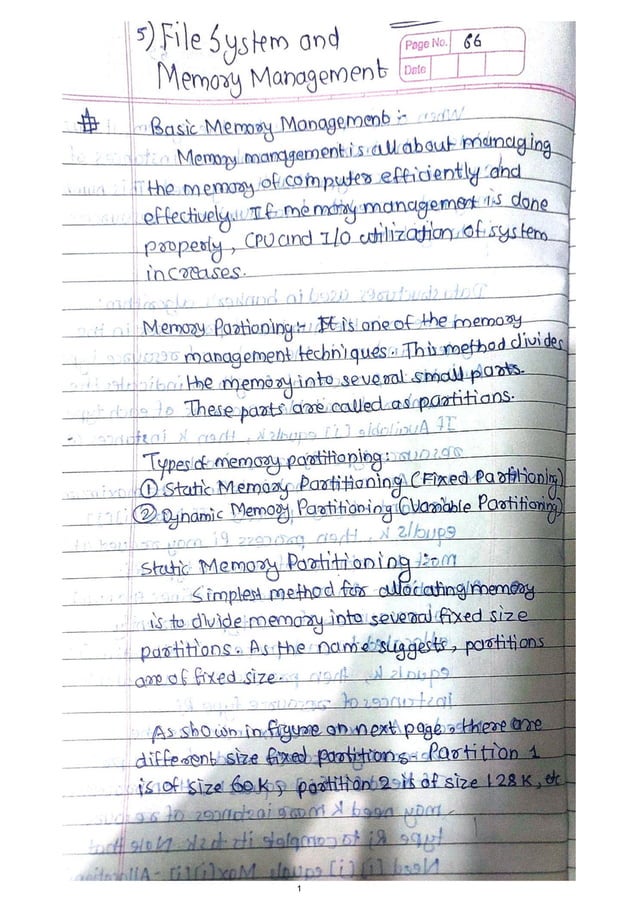 5) File System and
Memory Management
Page No. 66
Date
# Basic Memory Management :-
Memory management is all about managing
the memory of computer efficiently and
effectively. If memory management is done
properly, CPU and I/O utilization of system
increases.
Memory Partioning:- It is one of the memory
management techniques. This method divides
the memory into several small parts.
These parts are called as partitions.
Types of memory partitioning:
① Static Memory Partitioning (Fixed Partitioning)
② Dynamic Memory Partitioning (Variable Partitioning)
Static Memory Partitioning :-
Simplest method for allocating memory
is to divide memory into several fixed size
partitions. As the name suggests, partitions
are of fixed size.
As shown in figure on next page there are
different size fixed partitions. Partition 1
is of size 60K, partition 2 is of size 128K, etc
1